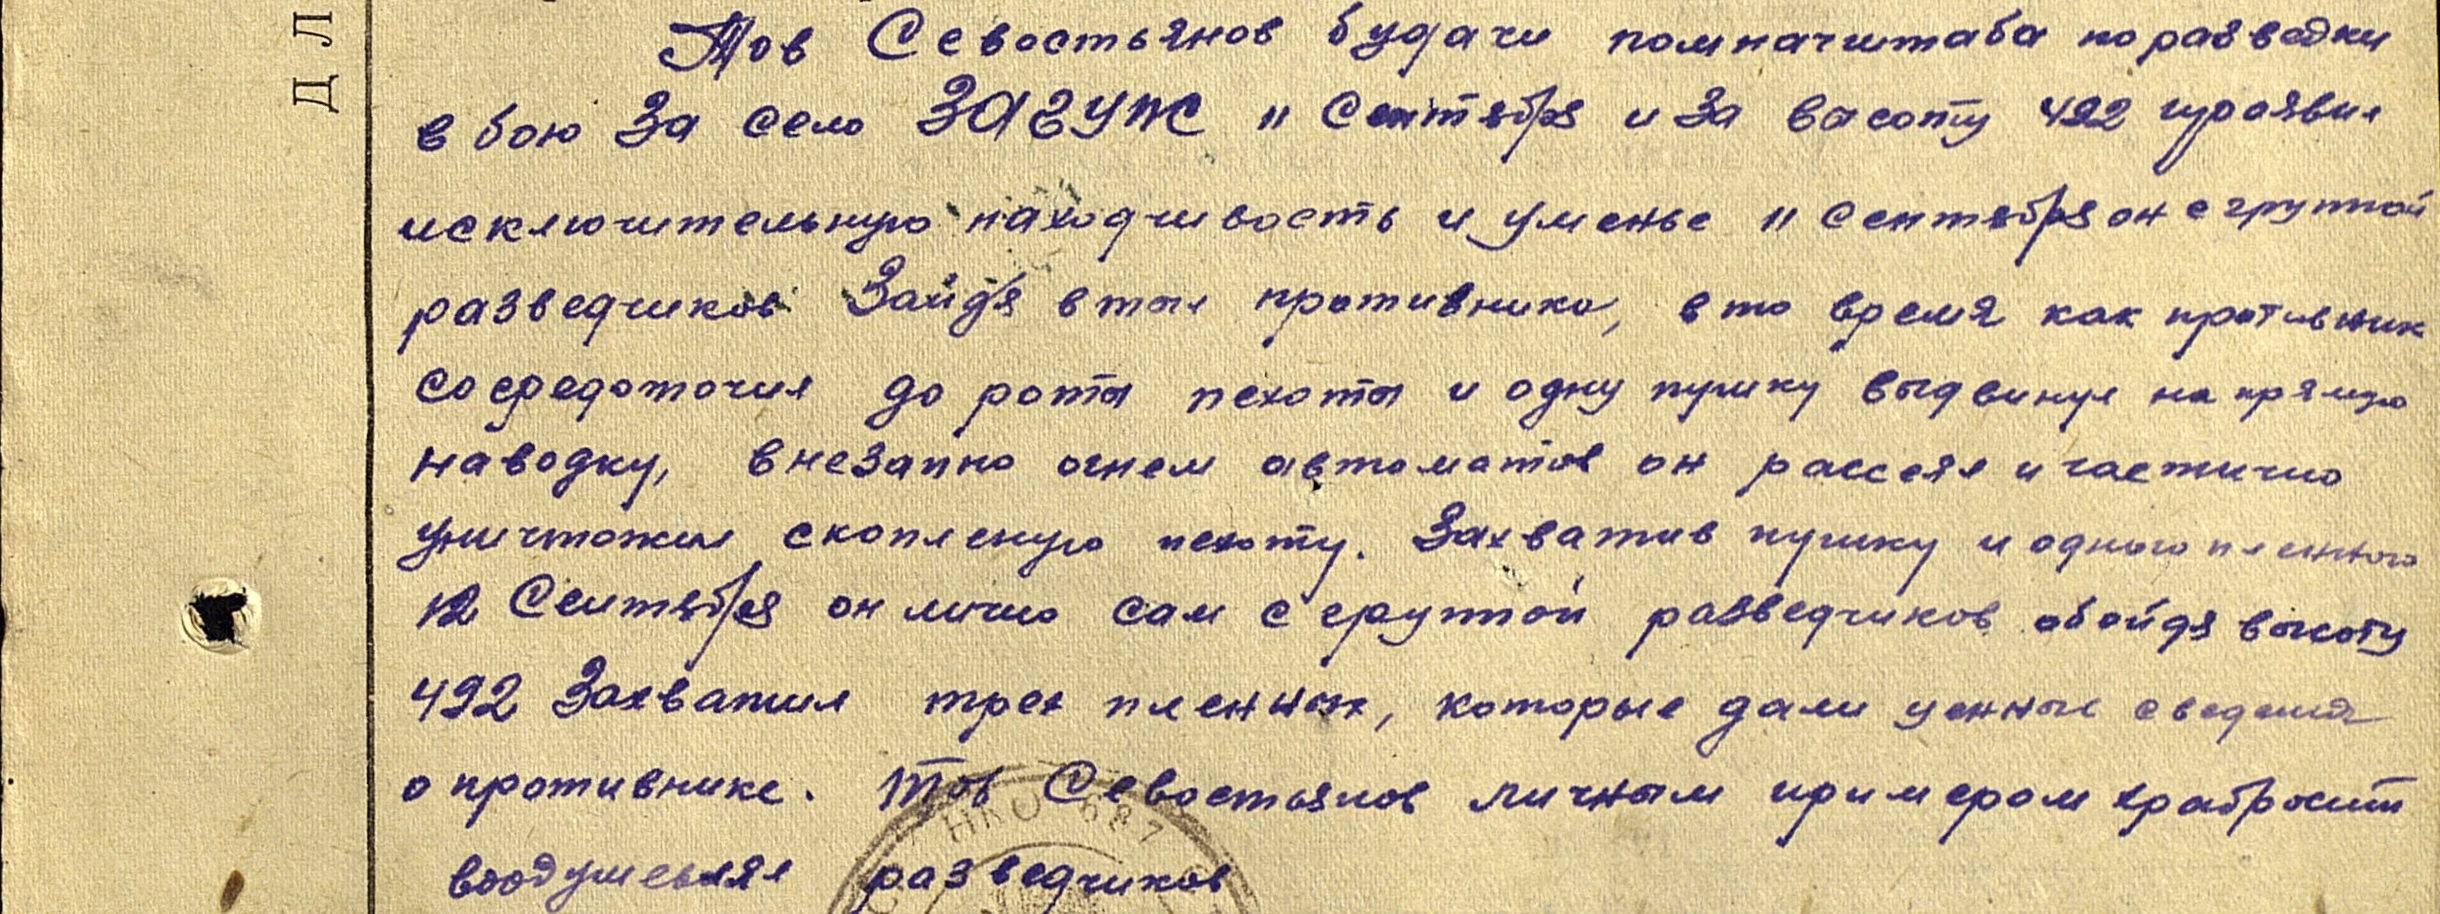 Д Л
Тов Севостьянов будучи помначштаба по разведки
в бою За село ЗАГУЖ 11 Сентября и За высоту 492 проявил
исключительную находчивость и уменье 11 Сентября он с группой
разведчиков Зайдя в тыл противника, в то время как противник
сосредоточил до роты пехоты и одну пушку выдвинул на прямую
наводку, внезапно огнем автоматов он рассеял и частично
уничтожил скопленую пехоту. Захватив пушку и одного пленного
12 Сентября он лично сам с группой разведчиков обойдя высоту
492 Захватил трех пленных, которые дали ценные сведения
о противнике. Тов Севостьянов личным примером храбрости
воодушевлял разведчиков
НКО 687